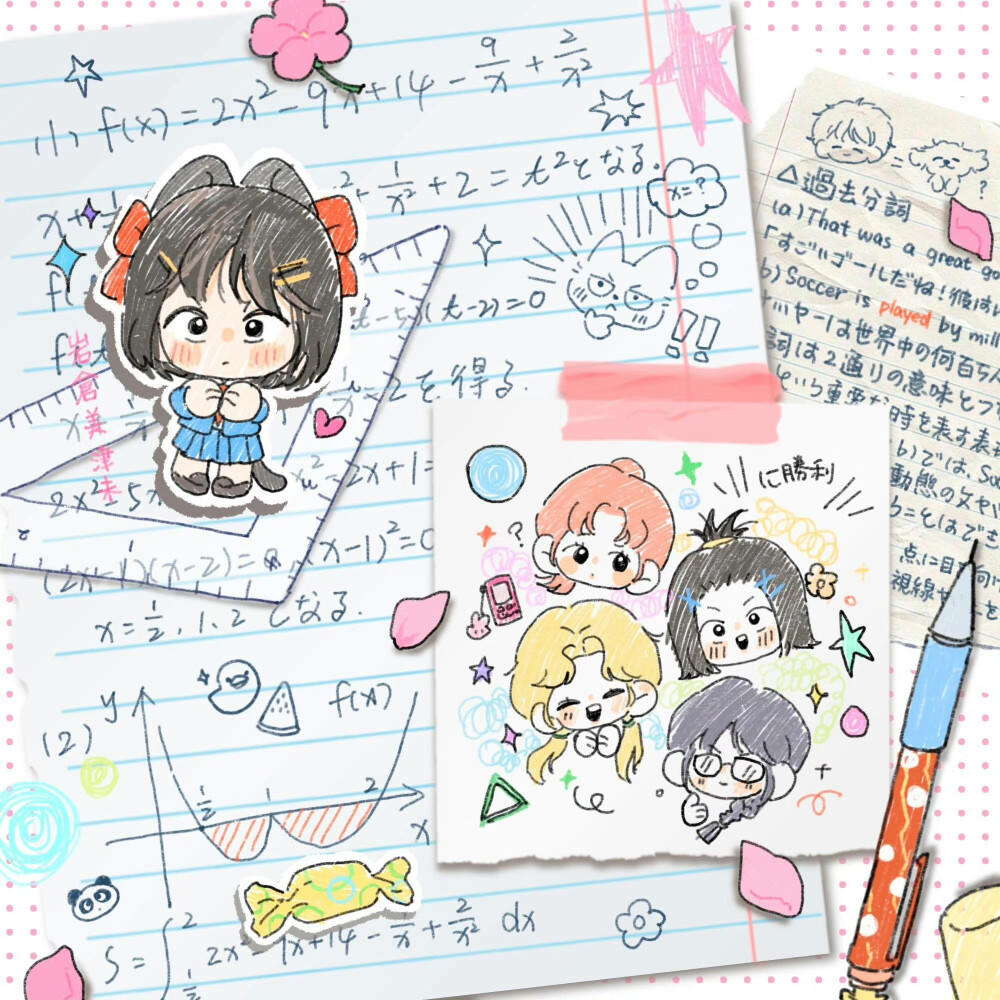 (1) f(x) = 2x² - 9x + 14 - 9/x + 2/x²
x + 1/ ² + 1/x² + 2 = t² となる.
x=?
t - 5)(t - 2) = 0
!?
- 2 を得る.
2x² - 5x x² - 2x + 1 =
(2x - 1)(x - 2) = 0, (x - 1)² = 0
x = 1/2, 1, 2 となる.
岩倉美津未
(2)
y
f(x)
1/2 1 2
x
S = ∫ 2 1/2 2x² - 9x + 14 - 9/x + 2/x² dx
に勝利
?
= ?
△過去分詞
(a) That was a great go
「すごいゴールだね!彼は
b) Soccer is played by mill
サッカーは世界中の何百万
詞は2通りの意味とつ
という重要な時を表す表現
b)では、So
動態の文や
ことはでき
点に目を向け
視線